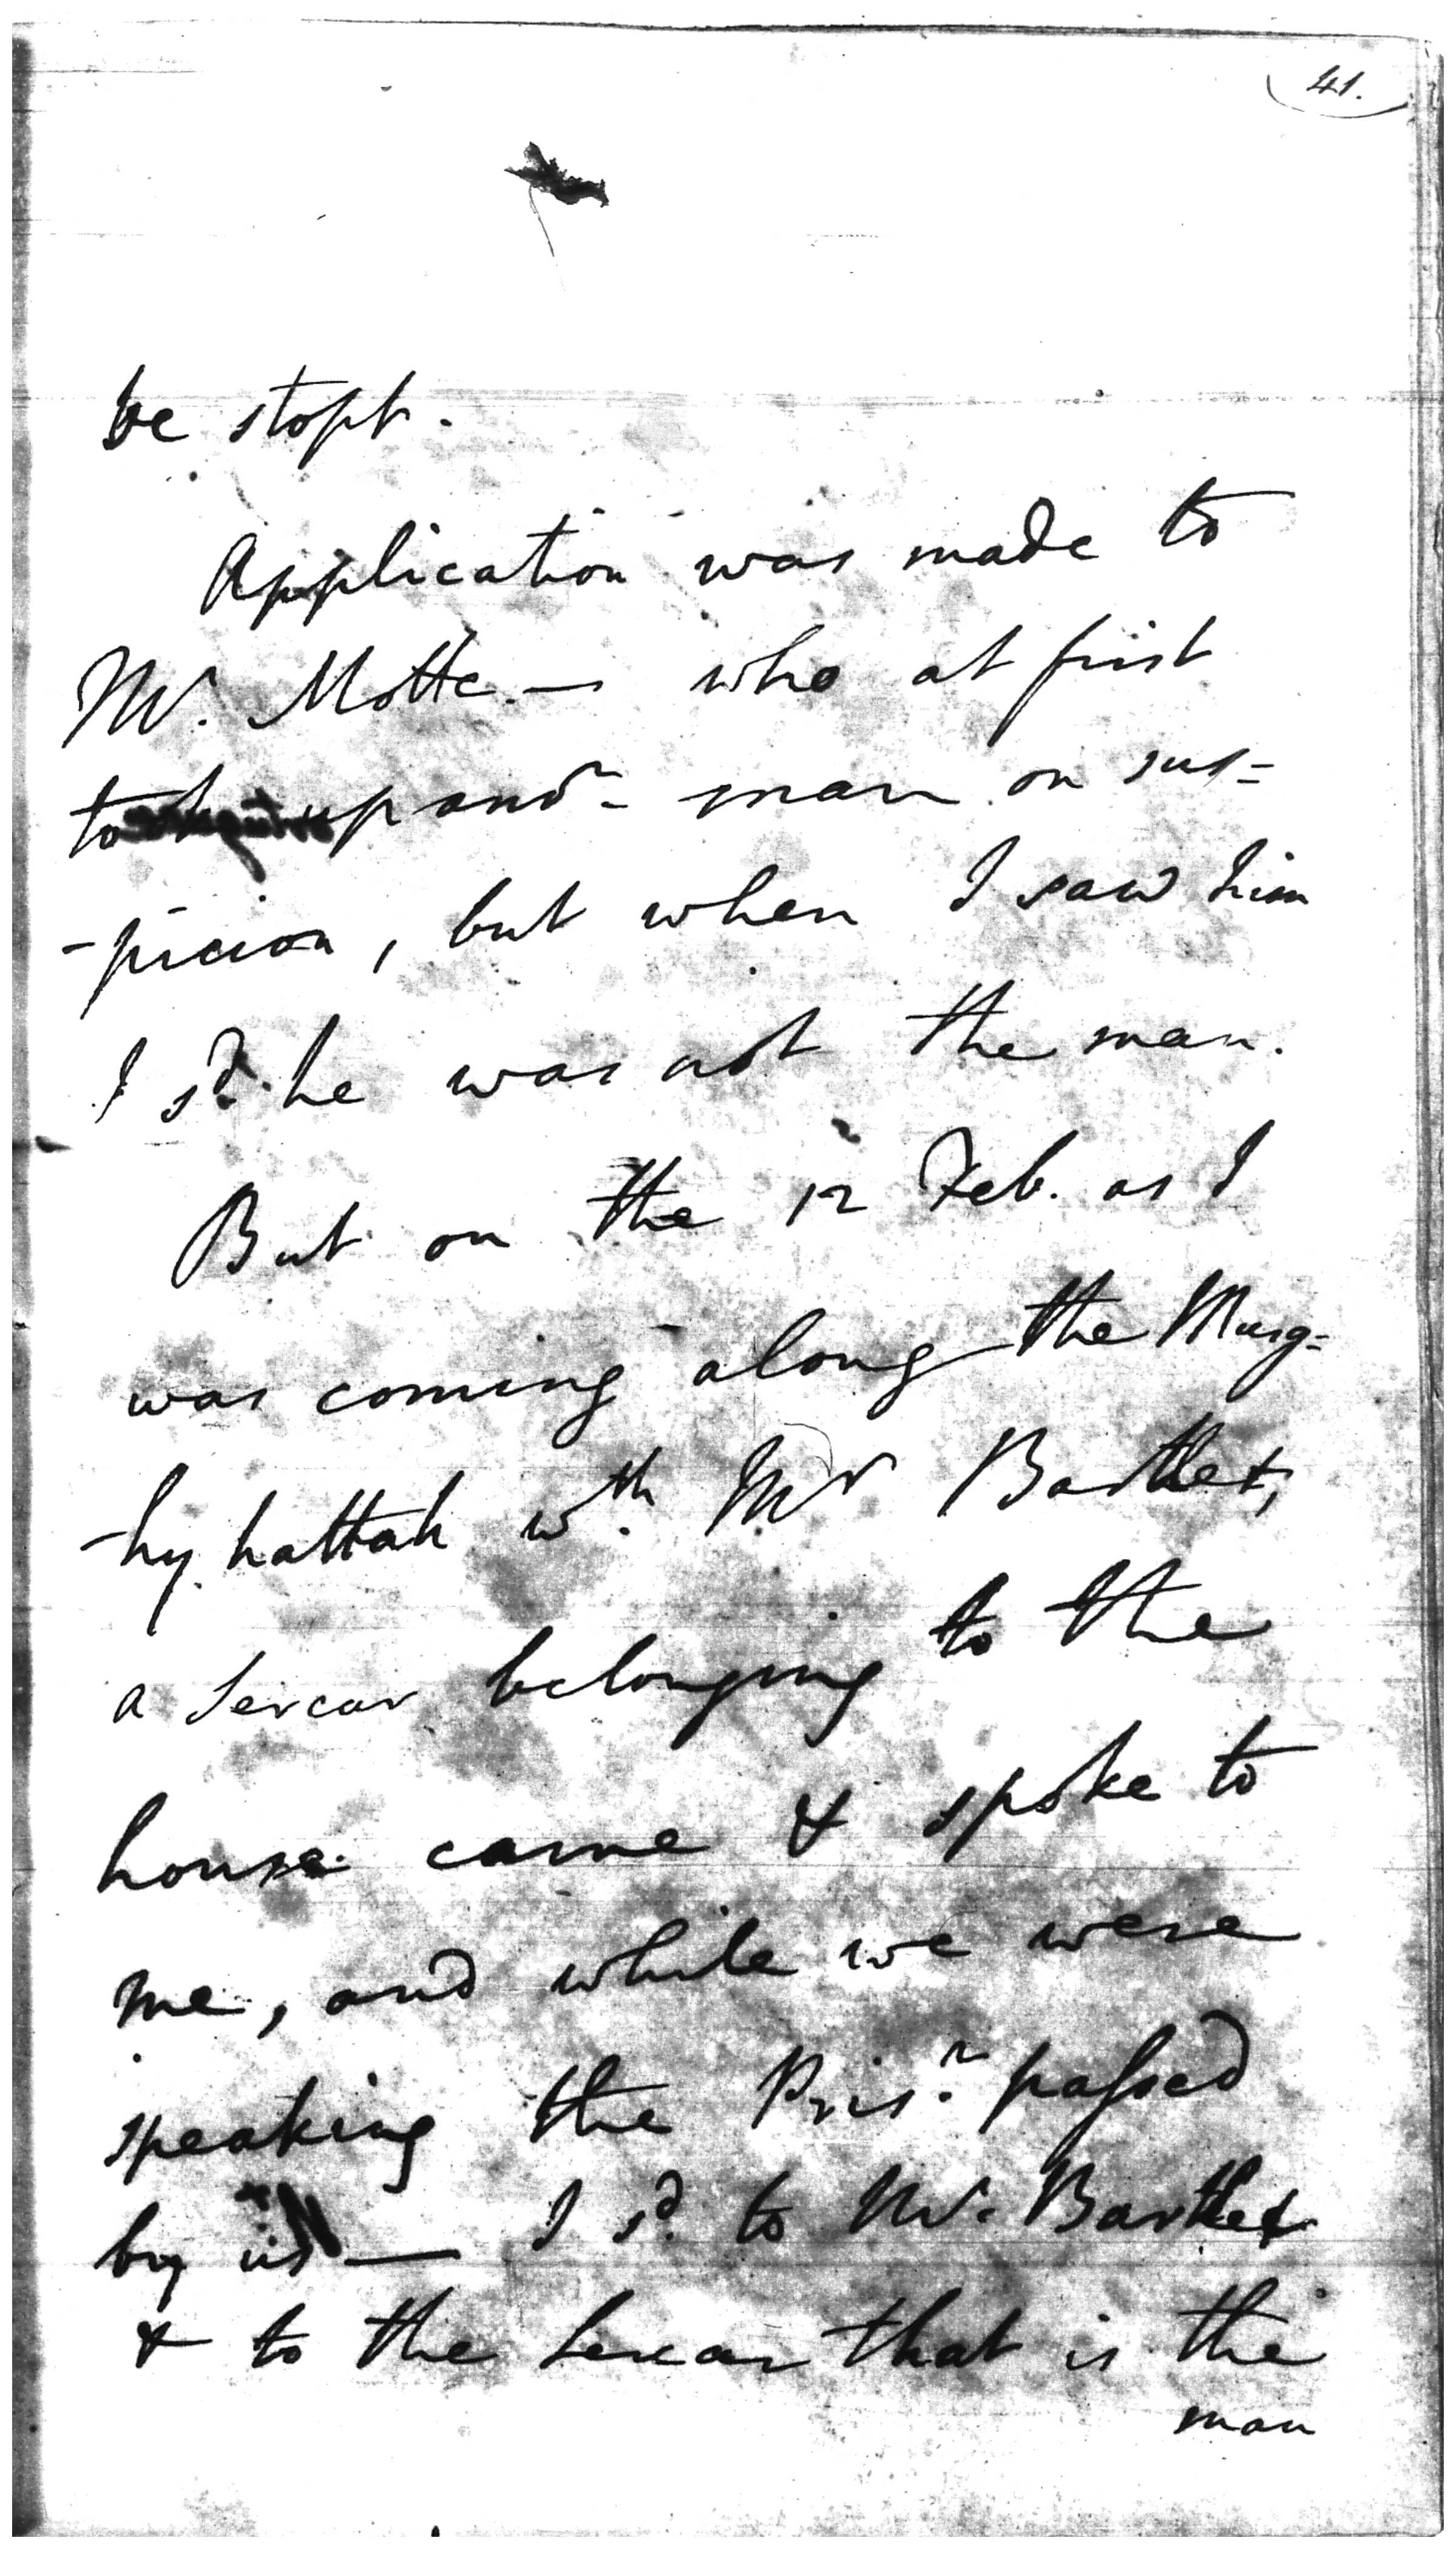 41.
be stopt.
Application was made to
Mr. Motte — who at first
to up anor- man on sus=
-picion, but when I saw him
I sd. he was not the man.
But on the 12 Feb. as I
was coming along the Murg-
-hy hattah wth. Mr Bartlet,
a Sercar belonging to the
house came & spoke to
me, and while we were
speaking the Prisr. passed
by us — I sd. to Mr. Bartlet
& to the Sercar that is the
man